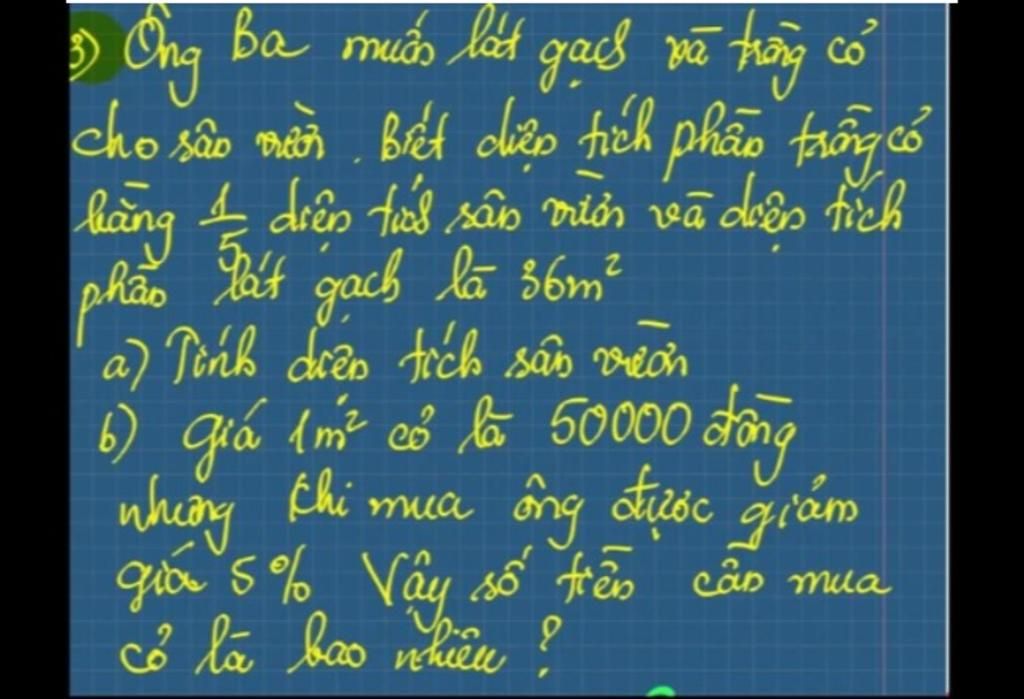 3) Ông Ba muốn lát gạch và trồng cỏ
cho sân vườn. Biết diện tích phần trồng cỏ
bằng 1/5 diện tích sân vườn và diện tích
phần lát gạch là 36m²
a) Tính diện tích sân vườn
b) giá 1m² cỏ là 50000 đồng
nhưng khi mua ông được giảm
giá 5% Vậy số tiền cần mua
cỏ là bao nhiêu?